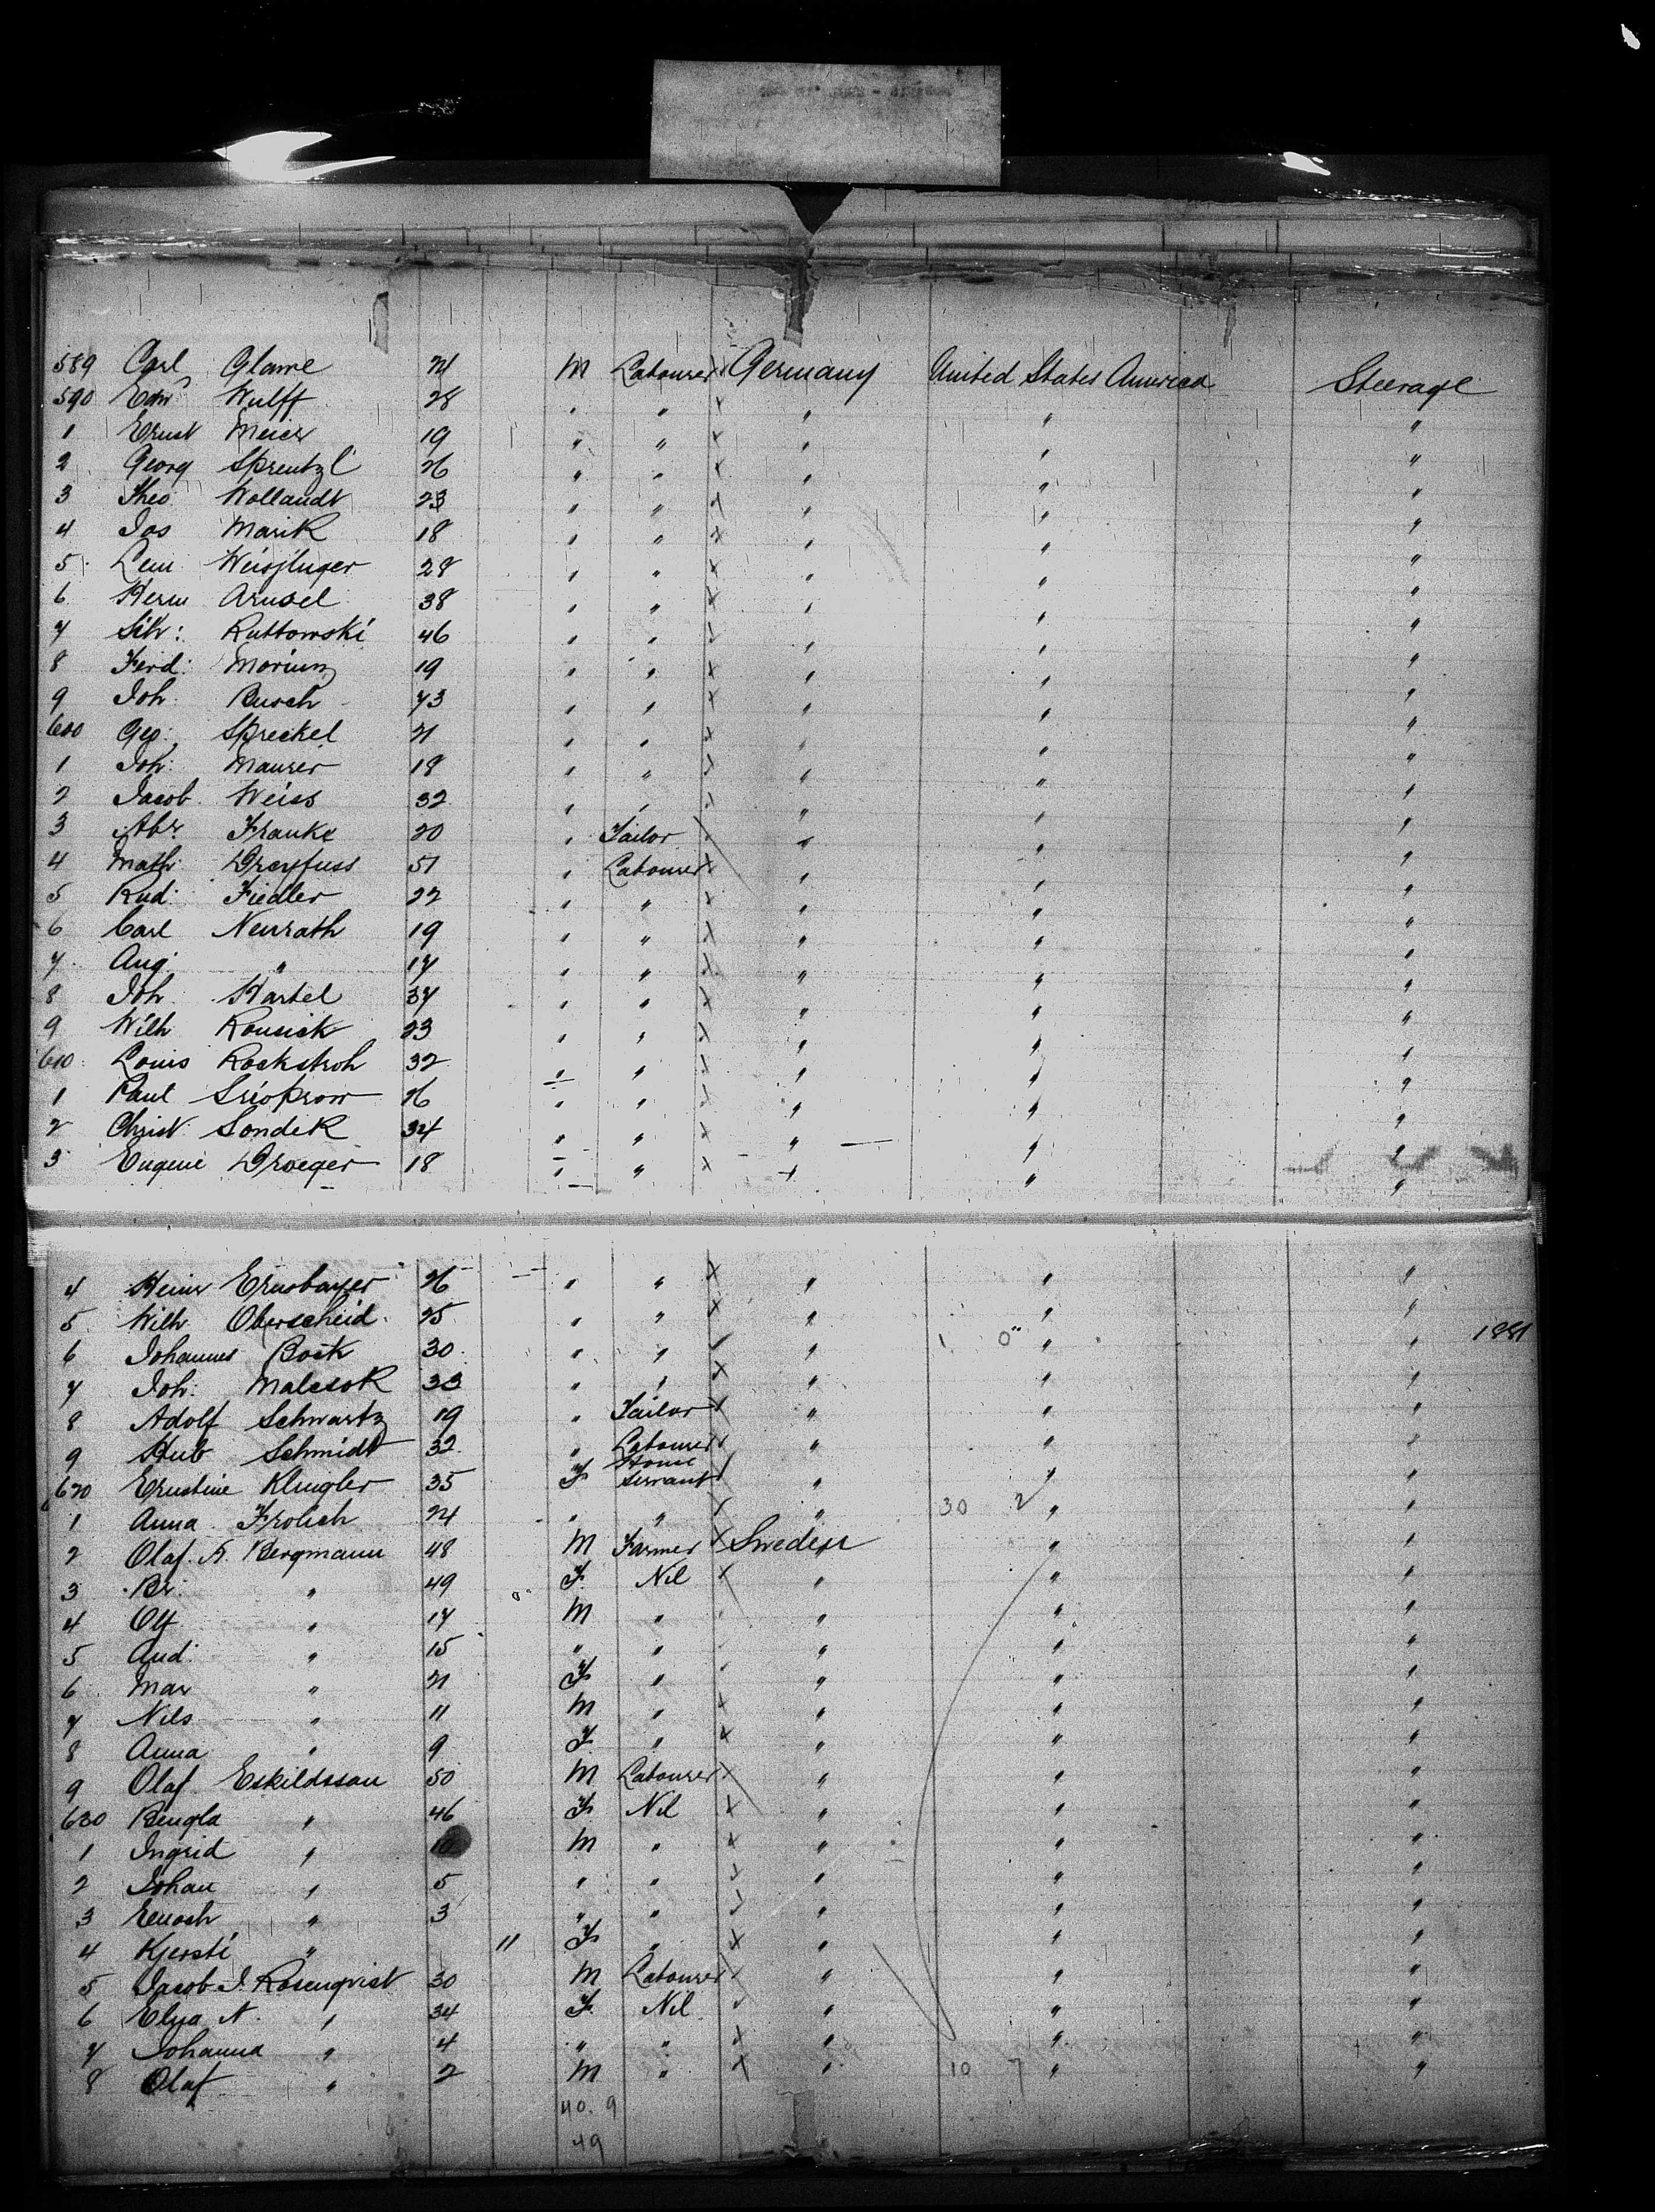 589 Carl Glame 24 M Labourer Germany United States America Steerage
590 Edw Wulff 28 " " " " "
1 Ernst Meier 19 " " " " "
2 Georg Sprentzl 26 " " " " "
3 Theo Wollandt 23 " " " " "
4 Jos Marik 18 " " " " "
5 28 " " " " "
6 Herm Arnsel 38 " " " " "
7 Ruttowski 46 " " " " "
8 Ferd: 19 " " " " "
9 Joh Busch 43 " " " " "
600 Geo: Spreckel 21 " " " " "
1 Joh: Maurer 18 " " " " "
2 Jacob Weiss 32 " " " " "
3 Abr. Franke 20 " Tailor " " "
4 Math Dreyfuss 51 " Labourer " " "
5 Rud: Fiedler 22 " " " " "
6 Carl Neurath 19 " " " " "
7 Aug: " 17 " " " " "
8 Joh Hartel 37 " " " " "
9 Wilh Konsick 23 " " " " "
610 Louis Rockstroh 32 " " " " "
1 Paul 26 " " " " "
2 Christ Sondek 34 " " " " "
3 Eugene Droeger 18 " " " " "
4 Heinr 26 " " " " "
5 Wilh Oberscheid 25 " " " " "
6 Johannes Bock 30 " " " " " 1881
7 Joh: Malcsok 33 " " " " "
8 Adolf Schwartz 19 " Tailor " " "
9 Hub Schmidt 32 " Labourer " " "
620 Ernstine Klingler 35 F House Servant " " "
1 Anna Frolich 24 " " " 30 2 " "
2 Olaf. A. Bergmann 48 M Farmer Sweden " "
3 Br. " 49 F. Nil " " "
4 Olf " 17 M " " " "
5 And: " 15 " " " " "
6 Mar " 21 F " " " "
7 Nils " 11 M " " " "
8 Anna " 9 F. " " " "
9 Olaf Eskildssan 50 M Labourer " " "
630 Bengla " 46 F Nil " " "
1 Ingrid " 10 M " " " "
2 Johan " 5 " " " " "
3 Enoch " 3 " " " " "
4 Kjersti " 11 F " " " "
5 Jacob J. Rosenqvist 30 M Labourer " " "
6 Elna N. " 34 F. Nil " " "
7 Johanna " 4 " " " " "
8 Olaf " 2 M " " 10 7 " "
40. 9
49